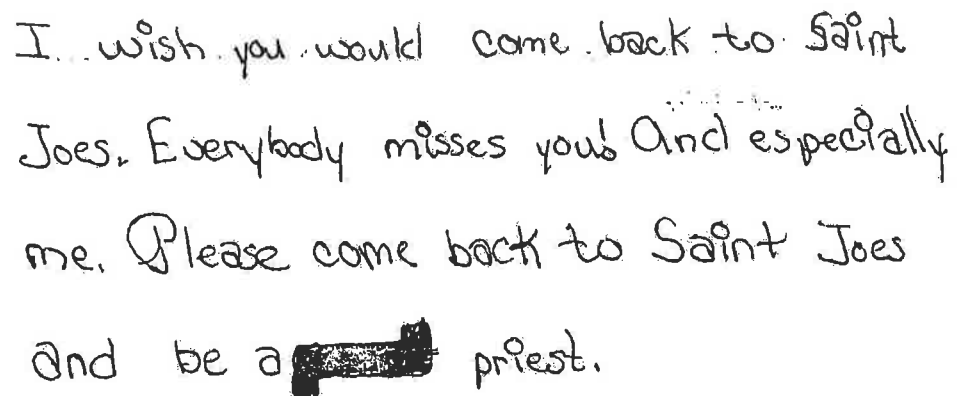 I wish you would come back to Saint
Joes. Everybody misses you! And especially
me. Please come back to Saint Joes
and be a priest.